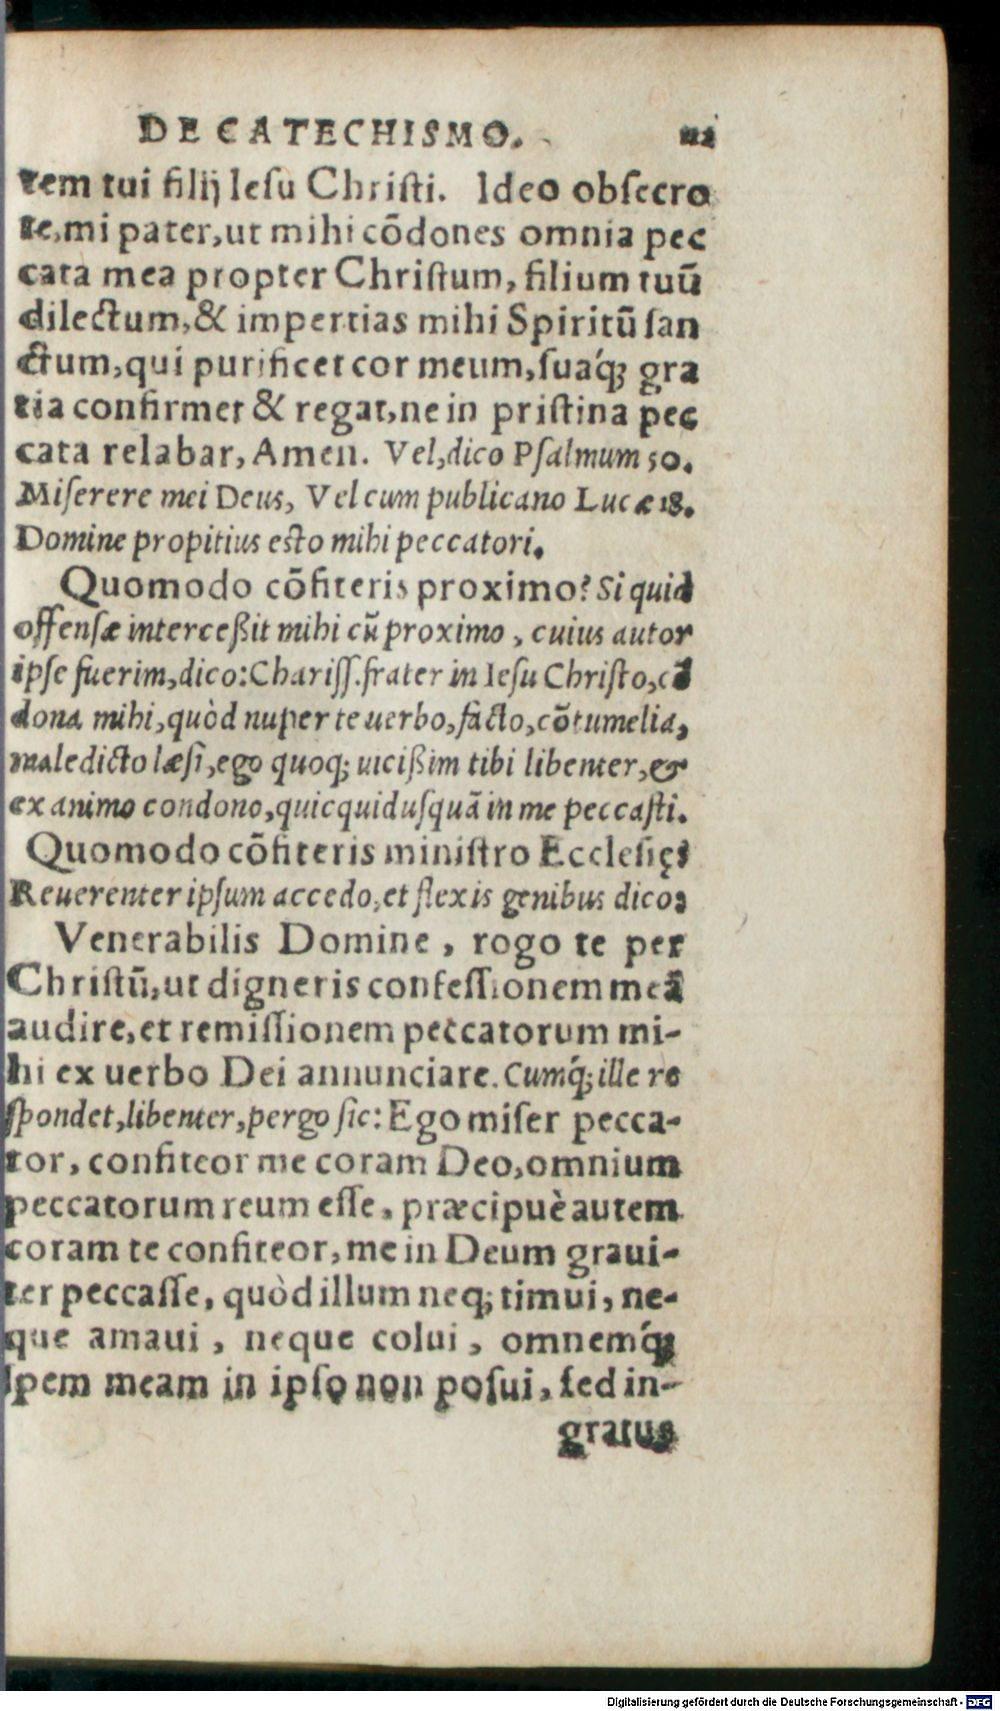 DE CATECHISMO.
tem tui filij Iesu Christi. Ideo obsecro
te, mi pater, ut mihi cõdones omnia pec
cata mea propter Christum, filium tuũ
dilectum, & impertias mihi Spiritũ san
ctum, qui purificet cor meum, suaq́; gra
tia confirmet & regat, ne in pristina pec
cata relabar, Amen. Vel, dico Psalmum 50.
Miserere mei Deus, Vel cum publicano Lucæ 18.
Domine propitius esto mihi peccatori.
Quomodo cõfiteris proximo? Si quid
offensæ interceßit mihi cũ proximo, cuius autor
ipse fuerim, dico: Chariss. frater in Iesu Christo, cõ
dona mihi, quòd nuper te uerbo, facto, cõtumelia,
maledicto læsi, ego quoq; uicißim tibi libenter, &
ex animo condono, quicquid usquã in me peccasti.
Quomodo cõfiteris ministro Ecclesię?
Reuerenter ipsum accedo, et flexis genibus dico:
Venerabilis Domine, rogo te per
Christũ, ut digneris confessionem meã
audire, et remissionem peccatorum mi-
hi ex uerbo Dei annunciare. Cumq́; ille re
spondet, libenter, pergo sic: Ego miser pecca-
tor, confiteor me coram Deo, omnium
peccatorum reum esse, præcipuè autem
coram te confiteor, me in Deum graui-
ter peccasse, quòd illum neq; timui, ne-
que amaui, neque colui, omnemq́;
spem meam in ipso non posui, sed in-
gratus
Digitalisierung gefördert durch die Deutsche Forschungsgemeinschaft - DFG